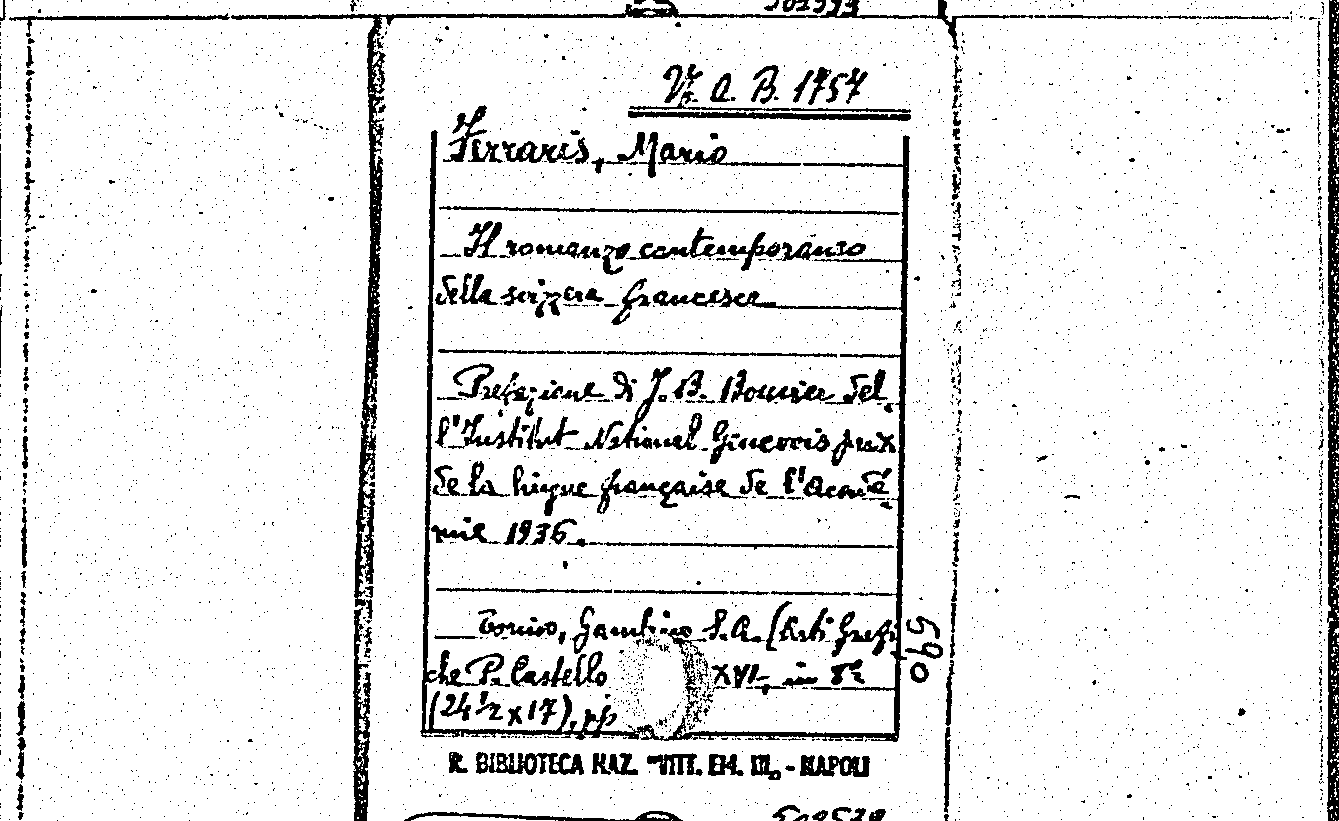 501993
Vz. A. B. 1757
Ferraris, Mario
Il romanzo contemporaneo
della svizzera francese
Prefazione di J. B. Bouvier del
l'Institut National Genevois prix
de la lingue française de l'Acadé
mie 1936.
Torino, Gambino S.A. (Arti Grafi
che P. Castello
XVI, in 8º
(24 1/2 x 17), pp
690
R. BIBLIOTECA NAZ. "VITT. EM. III„ - NAPOLI